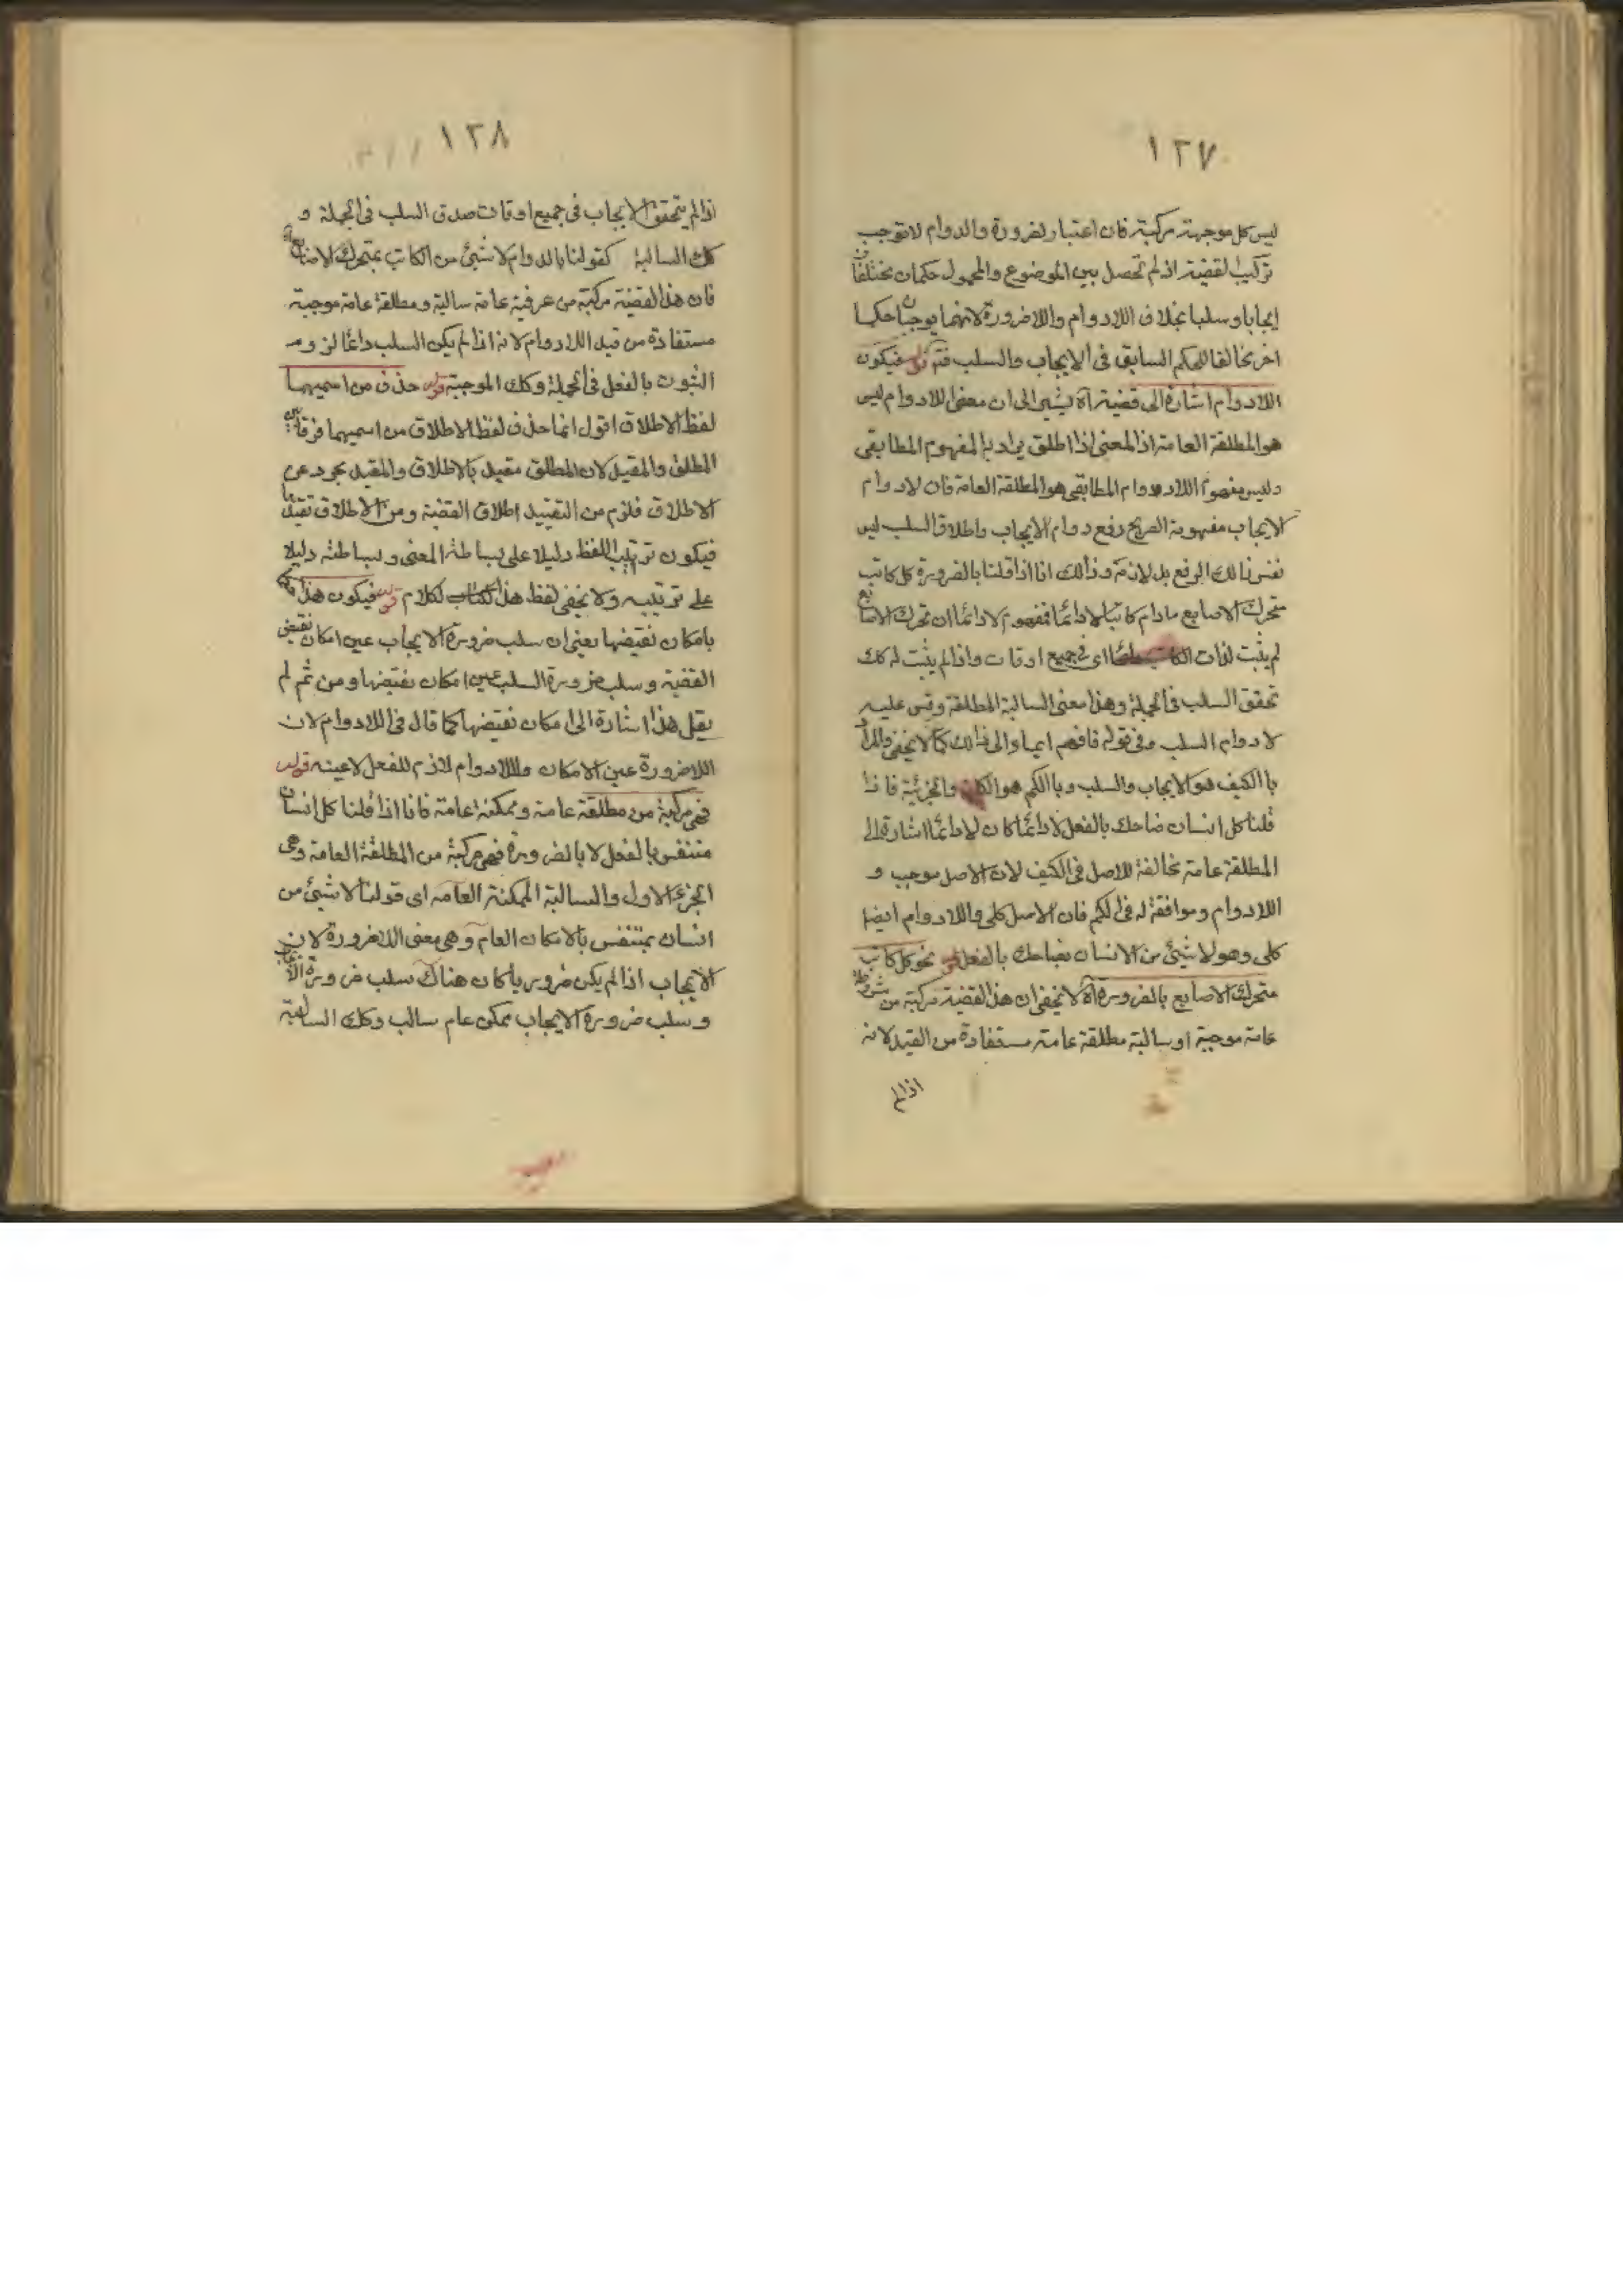 ١٢٧
ليس كل موجهة مركبة فان اعتبار لضرورة والدوام لا توجب
تركيب لقضية اذ لم تحصل بين الموضوع والمحمول حكمان مختلفان
ايجابا وسلبا بخلاف اللادوام واللاضرورة لانهما يوجبان حكما
اخر مخالفا للحكم السابق فى الايجاب والسلب قوله فيكون
اللادوام اشارة الى قضية آه يشير الى ان معنى اللادوام ليس
هو المطلقة العامة اذ المعنى اذا اطلق يراد به المفهوم المطابقى
وليس مفهوم اللادوام المطابقى هو المطلقة العامة فان لادوام
الايجاب مفهومة الصريح رفع دوام الايجاب واطلاق السلب ليس
نفس ذالك الرفع بل لازمه وذالك انا اذا قلنا بالضرورة كل كاتب
متحرك الاصابع مادام كاتبا لادائما فمفهوم لادائما ان تحرك الاصابع
لم يثبت لذات الكاتب اى فى جميع اوقات واذا لم يثبت له كك
تحقق السلب فى الجملة وهذا معنى السالبة المطلقة وقس عليه
لادوام السلب وفى قوله فافهم ايماء الى ذالك كما لا يخفى والمراد
باالكيف هو الايجاب والسلب وباالكم هو الكلية والجزئية فاذا
قلنا كل انسان ضاحك بالفعل لادائما كان لادائما اشارة الى
المطلقة عامة مخالفة للاصل فى الكيف لان الاصل موجب و
اللادوام وموافقة له فى الكم فان الاصل كلى واللادوام ايضا
كلى وهو لا شيئ من الانسان بضاحك بالفعل قوله نحو كل كاتب
متحرك الاصابع بالضرورة آه لا يخفى ان هذا القضية مركبة من مشروطة
عامة موجبة او سالبة مطلقة عامة مستفادة من القيد لانه
اذا لم
١٢٨
اذا لم يتحقق الايجاب فى جميع اوقات صدق السلب فى الجملة و
كك السالبة كقولنا بالدوام لا شيئ من الكاتب بمتحرك الاصابع
فان هذا القضية مركبة من عرفية عامة سالبة ومطلقة عامة موجبة
مستفادة من قيد اللادوام لانه اذا لم يكن السلب دائما لزوم
الثبوت بالفعل فى الجملة وكك الموجبة قوله حذف من اسميهما
لفظ الاطلاق اقول انما حذف لفظ الاطلاق من اسميهما فرقا بين
المطلق والمقيد لان المطلق مقيد بالاطلاق والمقيد مجرد عن
الاطلاق فلزم من التقييد اطلاق القضية ومن الاطلاق تقيدها
فيكون ترتيب اللفظ دليلا على بساطة المعنى وبساطته دليلا
على ترتيبه ولا يخفى لفظ هذا لكلام قوله فيكون هذا حكما
بامكان نقيضها يعنى ان سلب ضرورة الايجاب عين امكان نقيض
القضية وسلب ضرورة السلب عين امكان نقيضها ومن ثم لم
يقل هذا اشارة الى امكان نقيضها كما قال فى اللادوام لان
اللاضرورة عين الامكان واللادوام لازم للفعل لا عينه قوله
فهى مركبة من مطلقة عامة وممكنة عامة فانا اذا قلنا كل انسان
متنفس بالفعل لا بالضرورة فهى مركبة من المطلقة العامة وهى
الجزء الاول والسالبة الممكنة العامه اى قولنا لا شيئ من
انسان بمتنفس بالامكان العام وهى معنى اللاضرورة لان
الايجاب اذا لم يكن ضروريا كان هناك سلب ضرورة الايجاب
وسلب ضرورة الايجاب ممكن عام سالب وكك السالبة